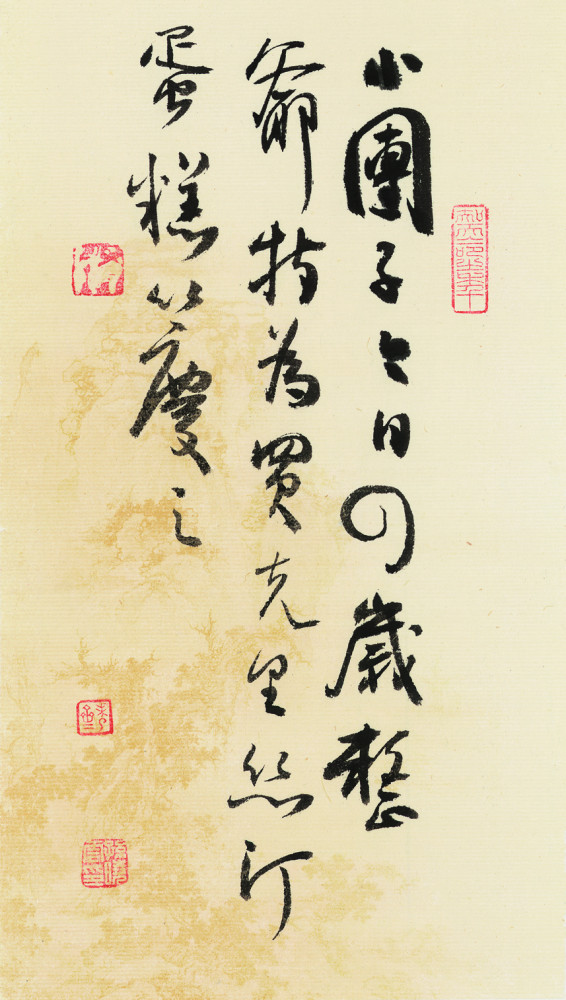 小團子今日四歲整
爺特為買克里絲汀
蛋糕以慶之